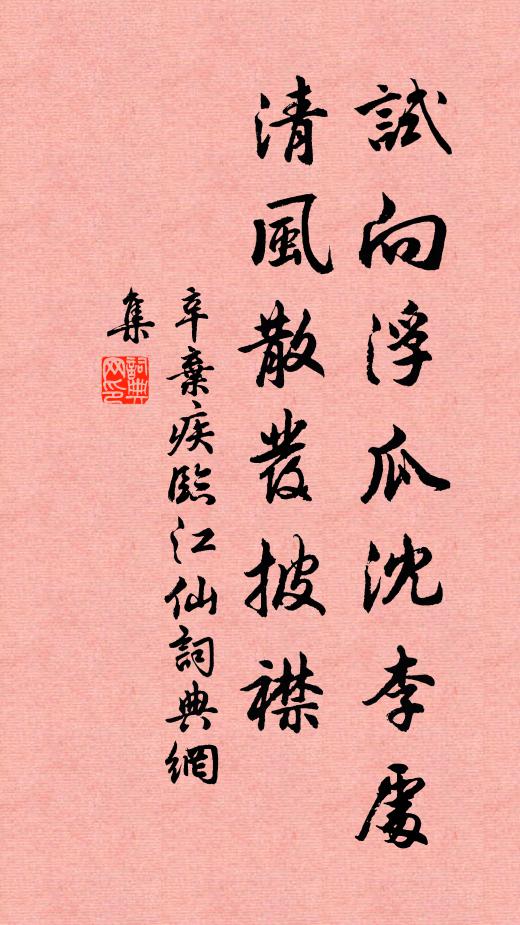 試向浮瓜沈李處
清風散發披襟
辛棄疾臨江仙詞典網
集
詞典
网印